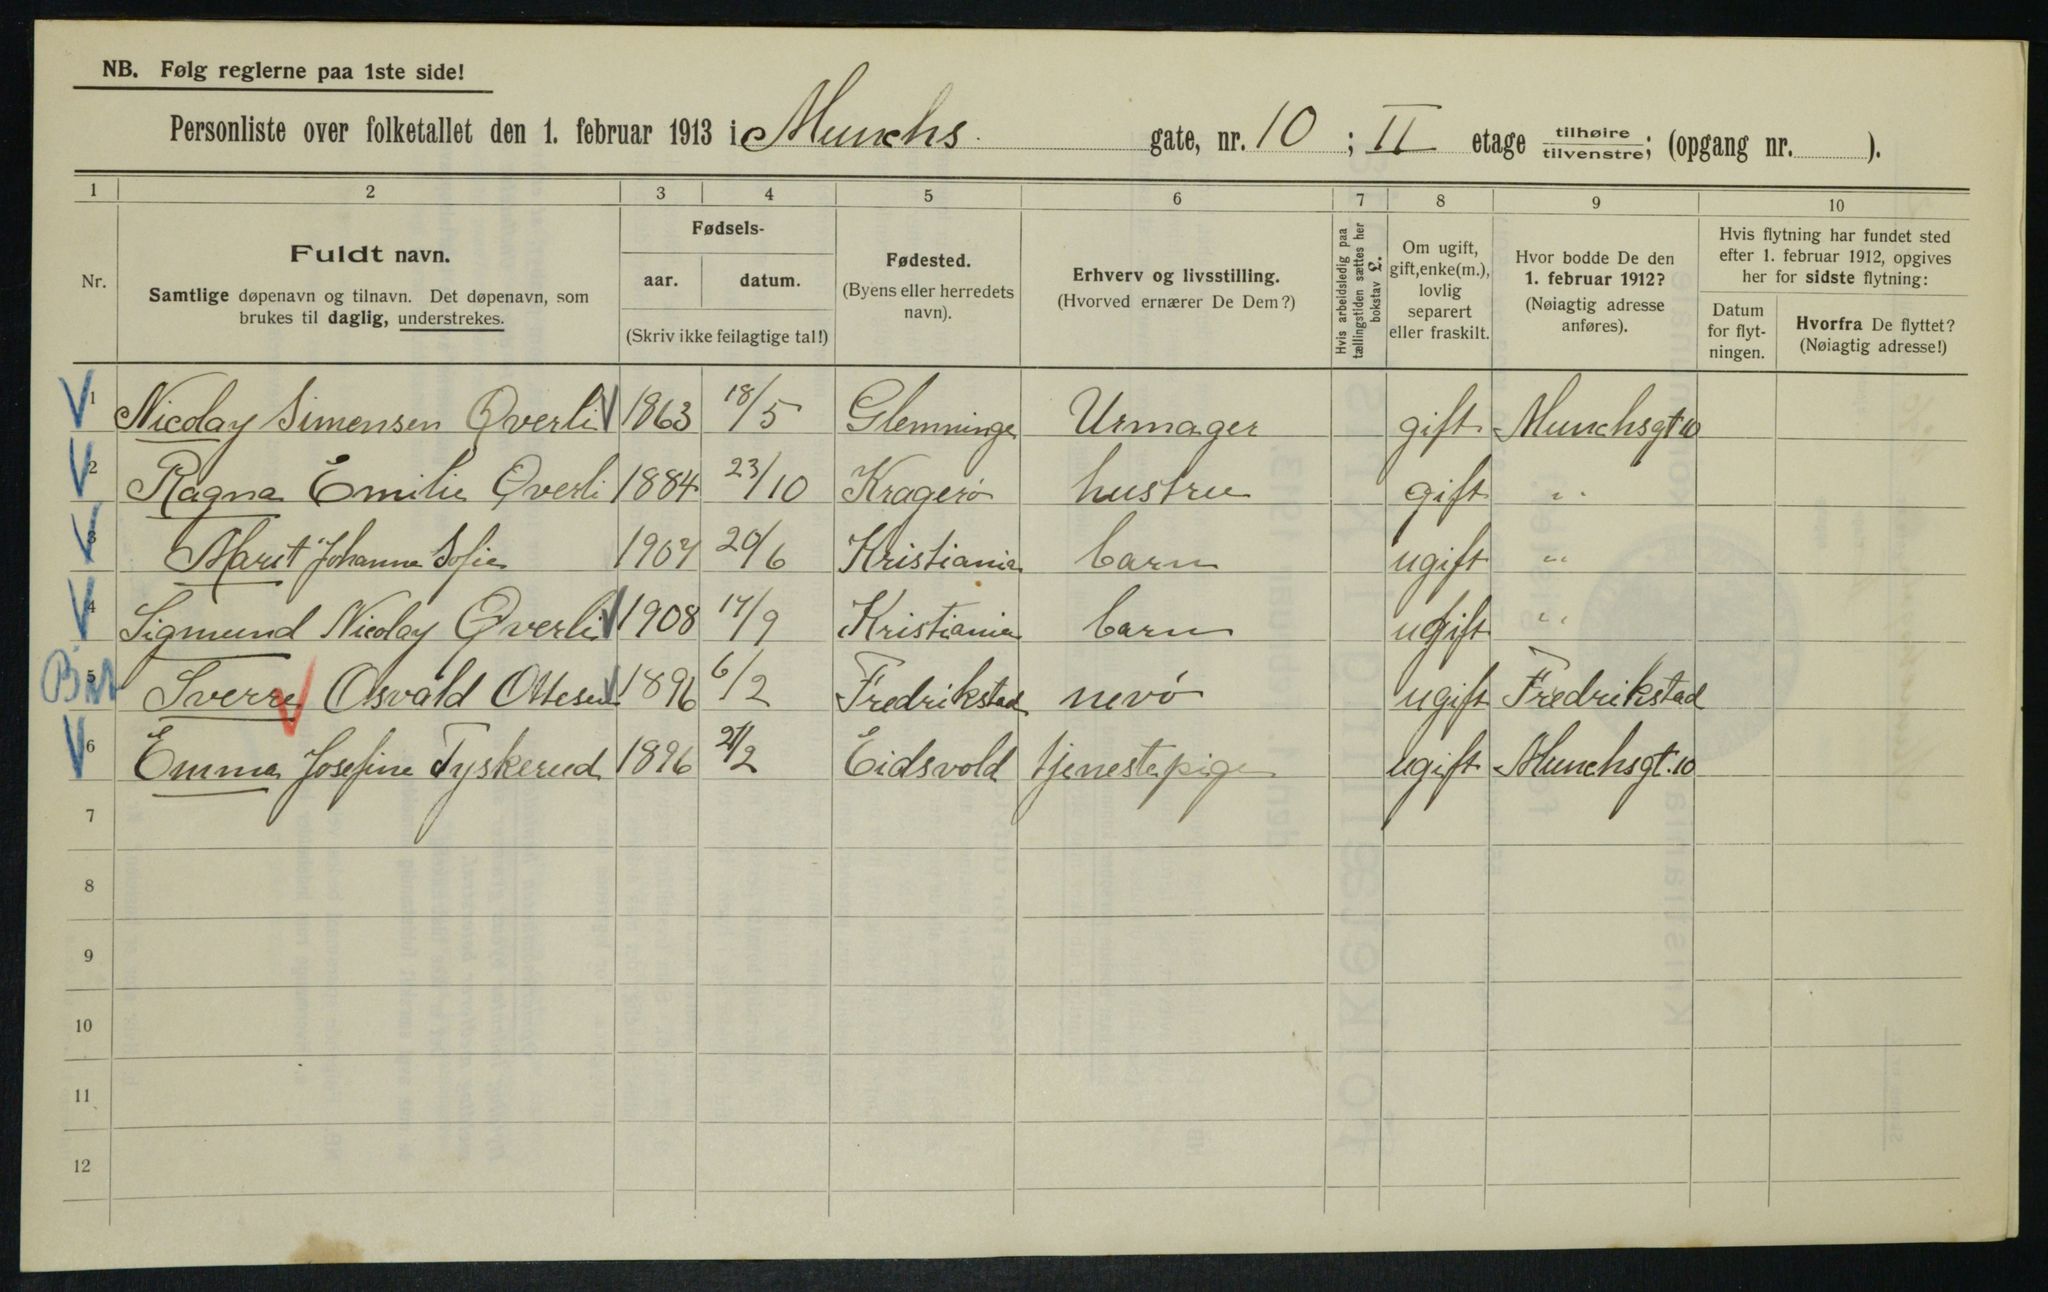 NB. Følg reglerne paa 1ste side!
Personliste over folketallet den 1. februar 1913 i Munchs gate, nr. 10 ; II etage tilhøire/tilvenstre; (opgang nr. ).
1 2 3 4 5 6 7 8 9 10
Nr.
Fuldt navn.
Samtlige døpenavn og tilnavn. Det døpenavn, som
brukes til daglig, understrekes.
Fødsels-
aar. datum.
(Skriv ikke feilagtige tal!)
Fødested.
(Byens eller herredets
navn).
Erhverv og livsstilling.
(Hvorved ernærer De Dem?)
Hvis arbeidsledig paa
tællingstiden sættes her
bokstav L.
Om ugift,
gift, enke(m.),
lovlig
separert
eller fraskilt.
Hvor bodde De den
1. februar 1912?
(Nøiagtig adresse
anføres).
Hvis flytning har fundet sted
efter 1. februar 1912, opgives
her for sidste flytning:
Datum
for flyt-
ningen.
Hvorfra De flyttet?
(Nøiagtig adresse!)
1 Nicolay Simensen Qverli 1863 18/5 Glemminge Urmager gift Munchsgt 10
2 Ragna Emilie Qverli 1884 23/10 Kragerø hustru gift "
3 Marit Johanne Sofie 1907 20/6 Kristiania barn ugift "
4 Sigmund Nicolay Qverli 1908 17/9 Kristiania barn ugift "
5 Sverre Osvald Ottesen 1896 6/2 Fredrikstad nevø ugift Fredrikstad
6 Emma Josefine Tyskerud 1896 2/2 Eidsvold tjenestepige ugift Munchsgt. 10
7
8
9
10
11
12